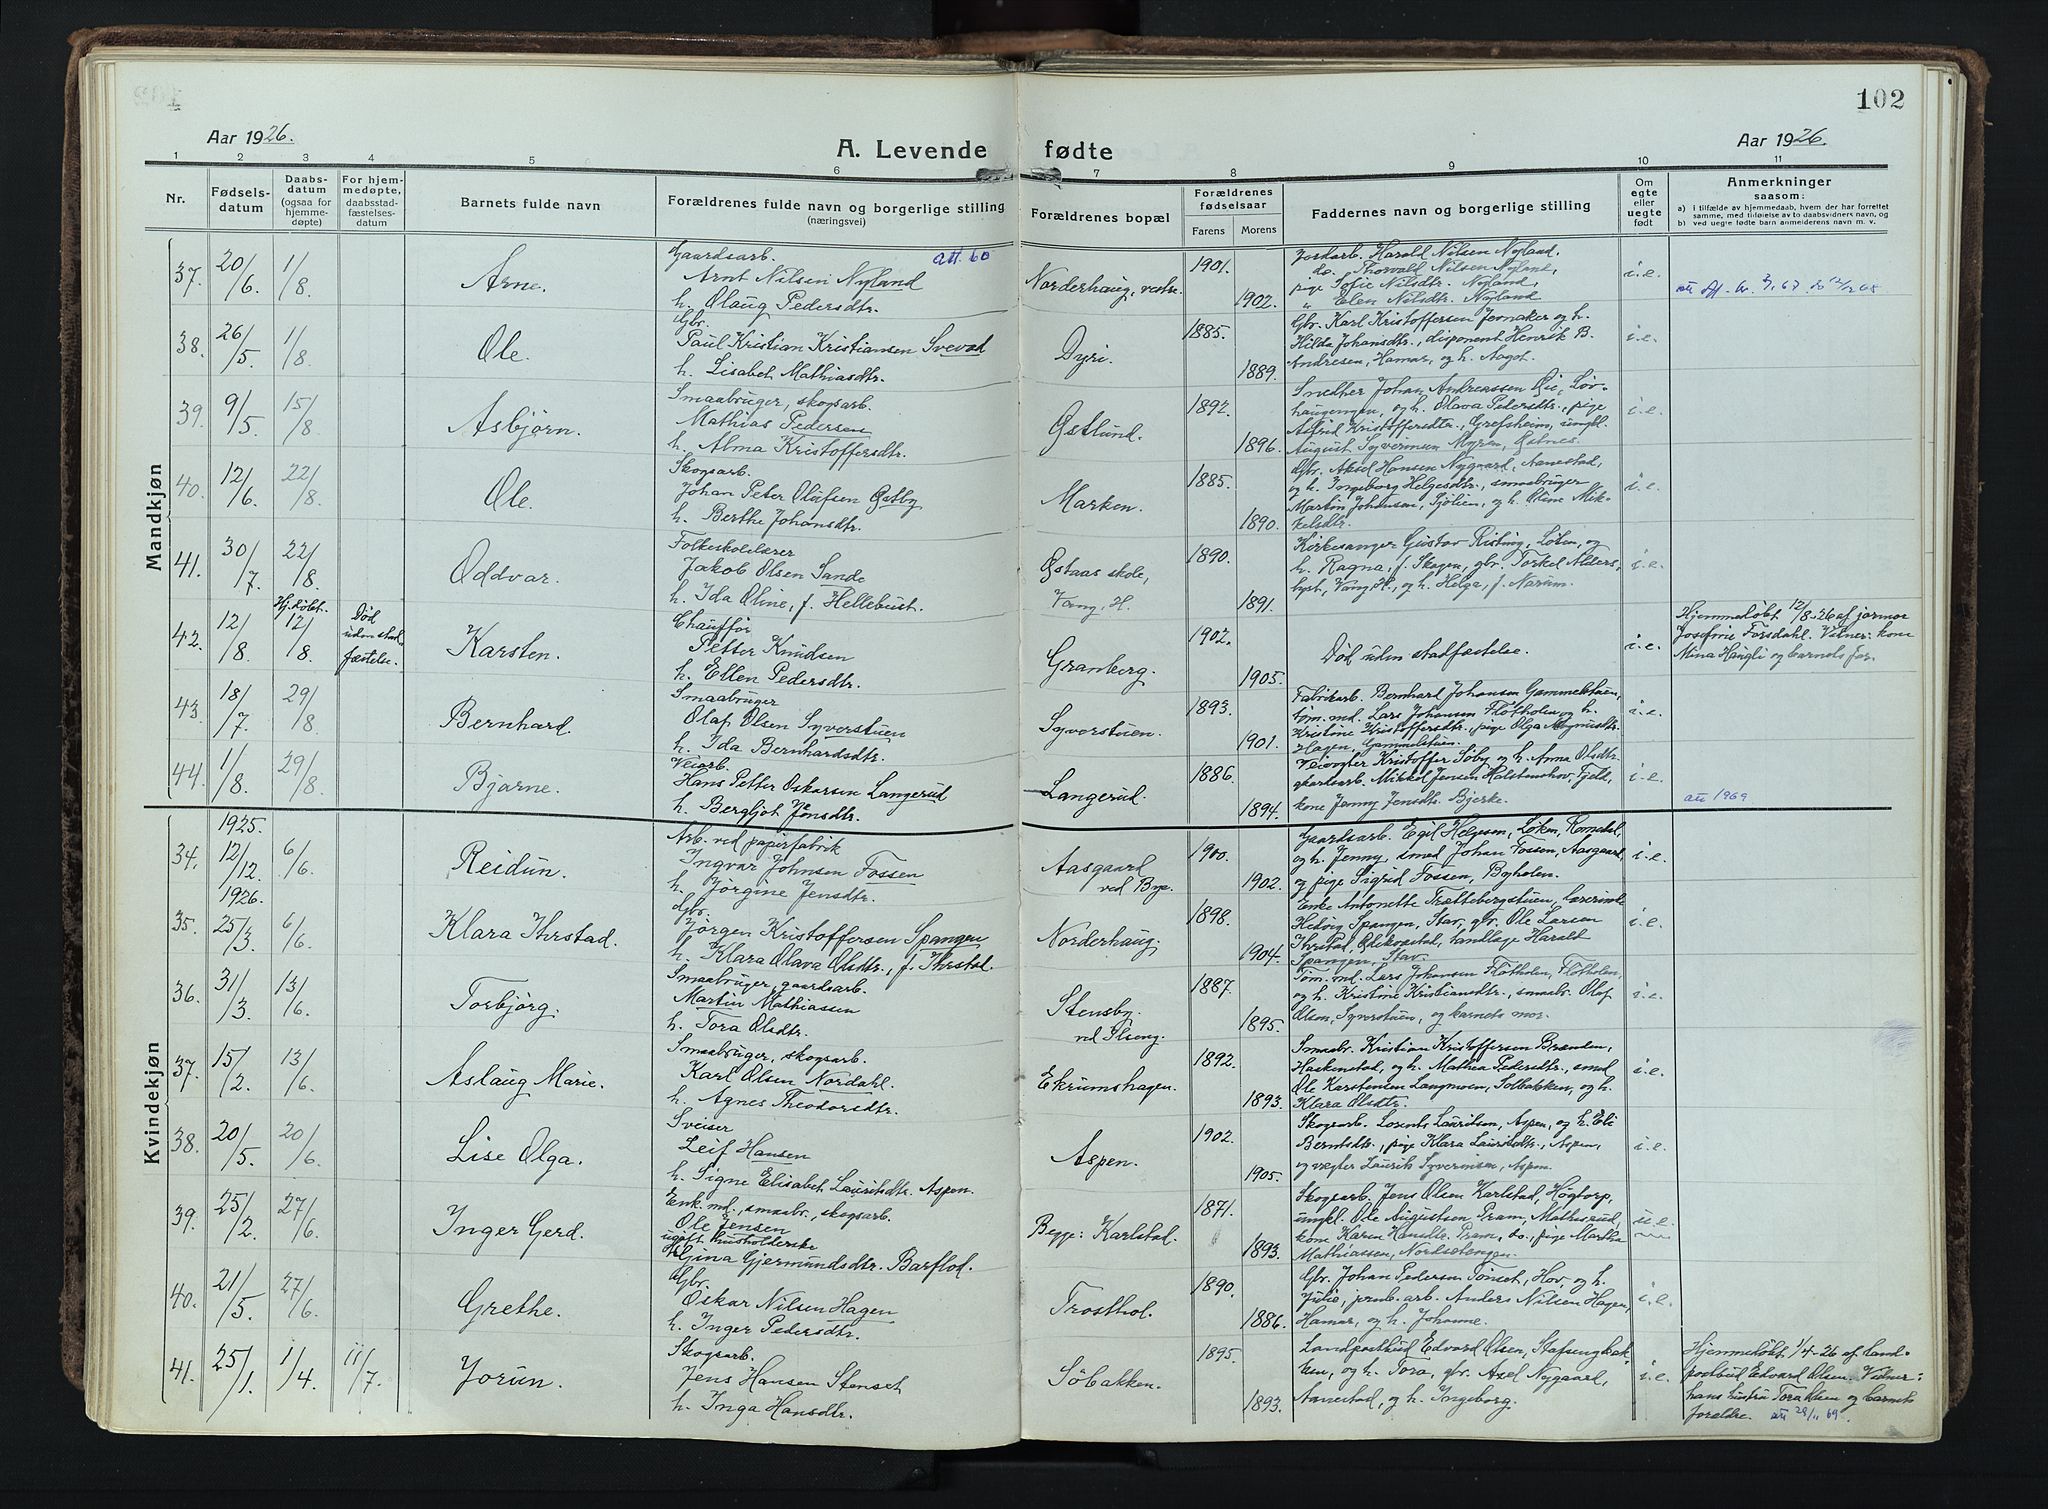 102
Aar 1926.
A. Levende fødte
Aar 1926.
1 2 3 4 5 6 7 8 9 10 11
Nr.
Fødselsdatum
Daabsdatum (ogsaa for hjemmedøpte)
For hjemmedøpte, daabsstadfæstelsesdatum
Barnets fulde navn
Forældrenes fulde navn og borgerlige stilling (næringsvei)
Forældrenes bopæl
Forældrenes fødselsaar
Farens Morens
Faddernes navn og borgerlige stilling
Om egte eller uegte født
Anmerkninger saasom:
a) i tilfælde av hjemmedaab, hvem der har forrettet samme, med tilføielse av to daabsvidners navn, og
b) ved uegte fødte barn anmelderens navn m. v.
Mandkjøn
37. 20/6. 1/8. Arne.
Gaardsarb. att. 60
Arnt Nilsen Nyland
h. Olaug Pedersdtr.
Norderhaug, vestre.
1901. 1902.
Jordarb. Harald Nilsen Nyland,
do. Thorvald Nilsen Nyland,
pige Sofie Nilsdtr. Nyland,
" Elen Nilsdtr. Nyland
i.e.
38. 26/5. 1/8. Ole.
Gbr.
Paul Kristian Kristiansen Svevad
h. Lisabet Mathiasdtr.
Dyri.
1885. 1889.
Gbr. Karl Kristoffersen Jernaker og h.
Hilda Johansdtr., disponent Henrik B.
Andresen, Hamar, og h. Aagot.
i.e.
39. 9/5. 15/8. Asbjørn.
Smaabruger, skogsarb.
Mathias Pedersen
h. Alma Kristoffersdtr.
Østlund.
1892. 1896.
Smedher Johan Andreassen Øie, Løvhaugengen, og h. Olava Pedersdtr., pige
Astrid Kristoffersdtr., Grefsheim, ungkl.
August Syversen Myren, Østnes.
i.e.
40. 12/6. 22/8. Ole.
Skogsarb.
Johan Peter Olafsen Østby
h. Berthe Johansdtr.
Marken.
1885. 1890.
Gbr. Aksel Hansen Nygaard, Aanestad,
og h. Ingeborg Helgesdtr., smaabruger
Martin Johansen, Sjølien, og h. Oline Mikkelsdtr.
i.e.
41. 30/7. 22/8. Oddvar.
Folkeskolelærer
Jakob Olsen Sande
h. Ida Oline, f. Hellebust.
Østaas skole,
Vang, H.
1890. 1891.
Kirkesanger Gustav Risting, Løten, og
h. Ragna, f. Skogen, gbr. Torkel Alderslyst, Vang H., og h. Helga, f. Narum.
i.e.
42. 12/8. Hj.døbt. 12/8. Død uden stadfæstelse. Karsten.
Chauffør
Petter Knudsen
h. Ellen Pedersdtr.
Granberg.
1902. 1905.
Død uden stadfæstelse.
i.e.
Hjemmedøbt 12/8-26 af jormor
Josefine Forsdahl. Vidner: kone
Mina Haugli og barnets far.
43. 18/7. 29/8. Bernhard.
Smaabruger
Olaf Olsen Syverstuen
h. Ida Bernhardsdtr.
Syverstuen.
1893. 1901.
Fabrikarb. Bernhard Johansen Gammelstuen,
tøm.md. Lars Johansen Fløtholen og h.
Kristine Kristoffersdtr., pige Olga Magnusdtr.
Hagen, Gammelstuen.
i.e.
44. 1/8. 29/8. Bjarne.
Veiarb.
Hans Petter Oskarsen Langerud
h. Bergljot Jensdtr.
Langerud.
1886. 1894.
Veivogter Kristoffer Søby og h. Anna Olsdtr.
gaardsarb. Mikkel Jensen Halstenshov, Fjeld,
kone Jenny Jensdtr. Bjerke.
i.e.
att 1969
Kvindekjøn
34. 1925. 12/12. 6/6. Reidun.
Arb. ved papirfabrik
Ingvar Johnsen Fossen
h. Jørgine Jensdtr.
Aasgaard
ved Bye.
1900. 1902.
Gaardsarb. Egil Helgesen, Løken, Romedal,
og h. Jenny, smed Johan Fossen, Aasgaard,
og pige Sigrid Fossen, Byholen.
i.e.
35. 1926. 25/3. 6/6. Klara Ihrstad.
Gbr.
Jørgen Kristoffersen Spangen
h. Klara Olava Olsdtr., f. Ihrstad.
Norderhaug.
1898. 1904.
Enke Antonette Trættebergstuen, lærerinde
Hedvig Spangen, Stav, gbr. Ole Larsen
Ihrstad, Ottestad, landlage Harald
Spangen, Stav.
i.e.
36. 31/3. 13/6. Torbjørg.
Smaabruger, gaardsarb.
Martin Mathiassen
h. Tora Olsdtr.
Stensby
ved Ilseng.
1887. 1895.
Tøm.md. Lars Johansen Fløtholen, Fløtholen,
og h. Kristine Kristiansdtr., smaabr. Olaf
Olsen, Syverstuen, og barnets mor.
i.e.
37. 15/2. 13/6. Aslaug Marie.
Smaabruger, skogsarb.
Karl Olsen Nordahl.
h. Agnes Theodorsdtr.
Ekrumshagen.
1892. 1893.
Smaabr. Kristian Kristoffersen Brænden,
Haakenstad, og h. Mathea Pedersdtr., smed
Ole Karstensen Langmoen, Solbakken, og h.
Klara Olsdtr.
i.e.
38. 20/5. 20/6. Lise Olga.
Sveiser
Leif Hansen
h. Signe Elisabet Lauritsdtr. Aspen.
Aspen.
1902. 1905.
Skogsarb. Lorents Lauritsen, Aspen, og h. Eli
Berntsdtr., pige Klara Lauritsdtr., Aspen,
og vægter Laurits Syversen, Aspen.
i.e.
39. 25/2. 27/6. Inger Gerd.
Enk.md., smaabr., skogsarb.
Ole Jensen
ugift husholderske
Gina Gjermundsdtr. Basflod.
Begge: Karlstad.
1871. 1893.
Skogsarb. Jens Olsen Karlstad, Høgtorp,
ungkl. Ole Augustsen Pram, Mathisrud,
kone Karen Hansdtr. Pram, do., pige Martha
Mathiassen, Nordsetengen.
u.e.
40. 21/5. 27/6. Grethe.
Gbr.
Oskar Nilsen Hagen
h. Inger Pedersdtr.
Trosthol.
1890. 1886.
Gbr. Johan Pedersen Tønset, Hov, og h.
Julie, jernb.arb. Anders Nilsen Hagen,
Hamar, og h. Johanne.
i.e.
41. 25/1. 1/4. 11/7. Jorun.
Skogsarb.
Jens Hansen Stenset
h. Inga Hansdtr.
Søbakken.
1895. 1893.
Landpostbud Edvard Olsen, Stafsengbakken, og h. Tora, gbr. Axel Nygaard,
Aanestad, og h. Ingeborg.
i.e.
Hjemmedøbt 1/4-26 af landpostbud Edvard Olsen. Vidner:
hans hustru Tora Olsen og barnets
forældre. att 29/11 69.